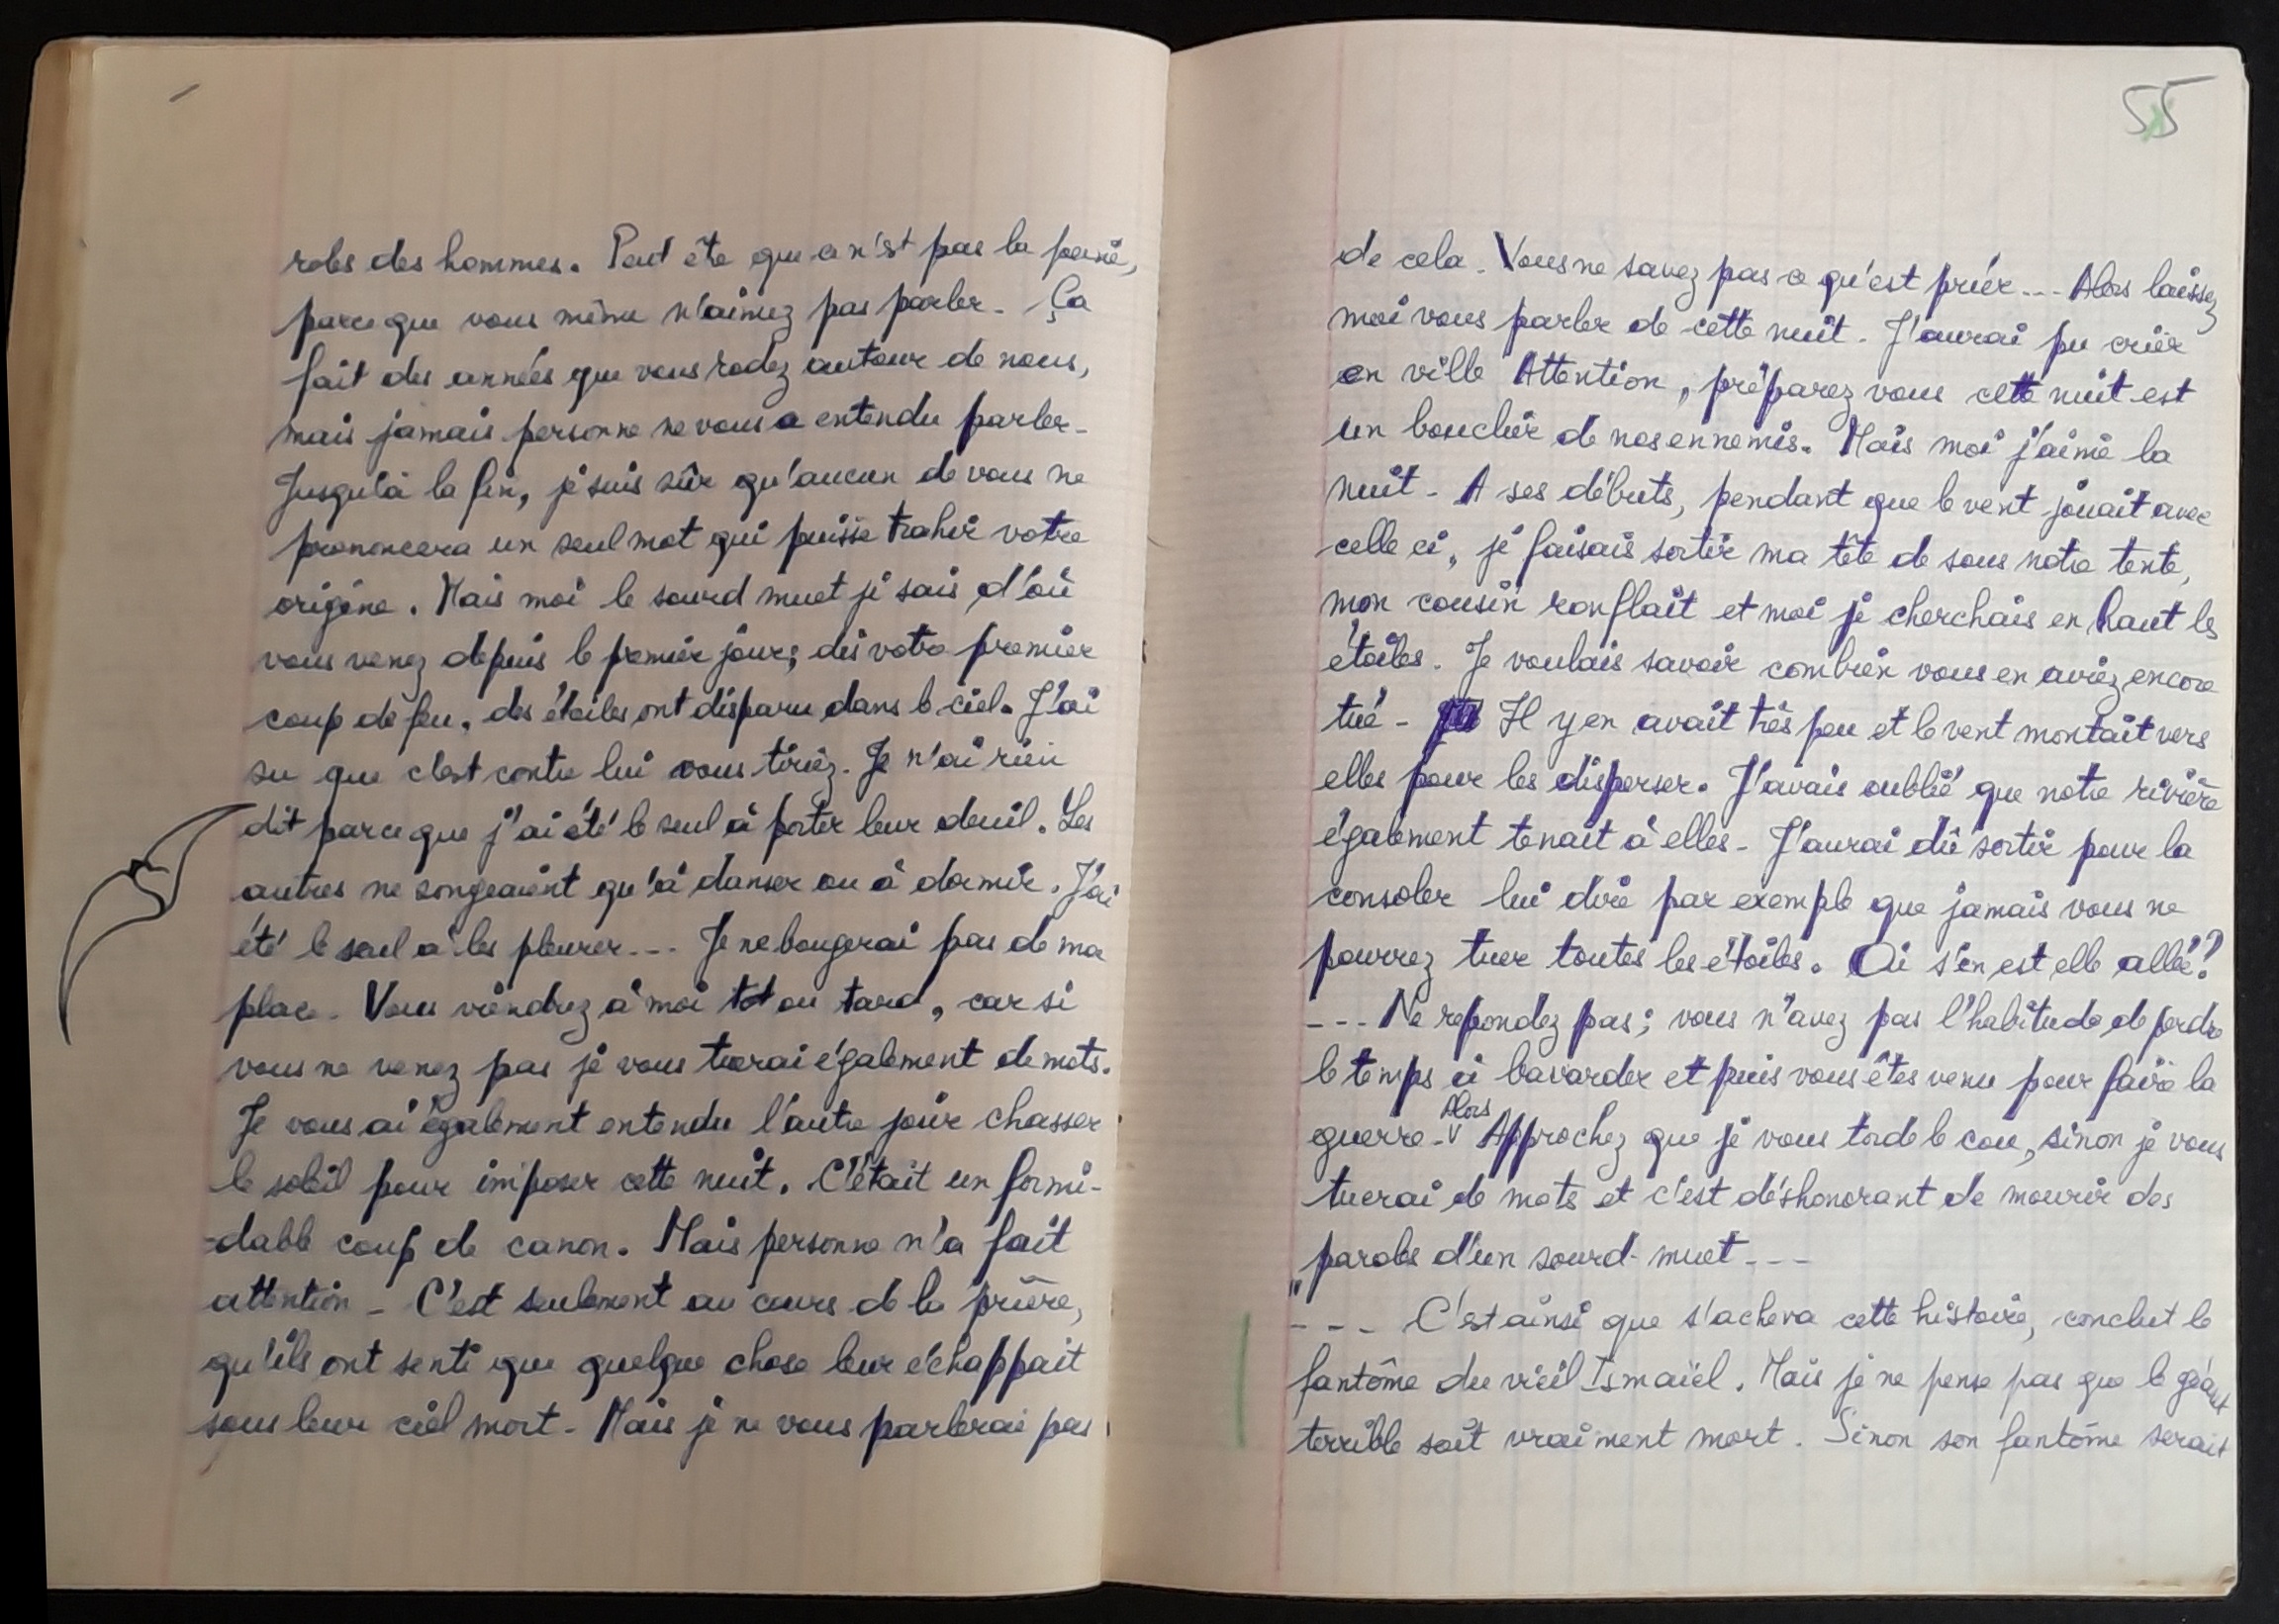 roles des hommes. Peut être que ce n'est pas la peine,
parce que vous même n'aimez pas parler. Ça
fait des années que vous rodez autour de nous,
mais jamais personne ne vous a entendu parler.
Jusqu'à la fin, je suis sûr qu'aucun de vous ne
prononcera un seul mot qui puisse trahir votre
origine. Mais moi le sourd muet je sais d'où
vous venez depuis le premier jour; dès votre premier
coup de feu, des étoiles ont disparu dans le ciel. J'ai
su que c'est contre lui vous tiriez. Je n'ai rien
dit parce que j'ai été le seul à porter leur deuil. Les
autres ne songeaient qu'à danser ou à dormir. J'ai
été le seul à les pleurer... Je ne bougerai pas de ma
place. Vous viendrez à moi tot ou tard, car si
vous ne venez pas je vous tuerai également de mots.
Je vous ai également entendu l'autre jour chasser
le soleil pour imposer cette nuit. C'était un formi-
-dable coup de canon. Mais personne n'a fait
attention - C'est seulement au cours de la prière,
qu'ils ont senti que quelque chose leur échappait
sous leur ciel mort - Mais je ne vous parlerai pas
55
de cela. Vous ne savez pas ce qu'est prier... Alors laissez
moi vous parler de cette nuit. J'aurai pu crier
en ville Attention, préparez vous cette nuit est
un bouclier de nos ennemis. Mais moi j'aime la
nuit - A ses débuts, pendant que le vent jouait avec
celle ci, je faisais sortir ma tête de sous notre tente,
mon cousin ronflait et moi je cherchais en haut les
étoiles. Je voulais savoir combien vous en aviez encore
tué - Il y en avait très peu et le vent montait vers
elles pour les disperser. J'avais oublié que notre rivière
également tenait à elles - J'aurai dû sortir pour la
consoler lui dire par exemple que jamais vous ne
pourrez tuer toutes les étoiles. Où s'en est elle allée?
--- Ne repondez pas; vous n'avez pas l'habitude de perdre
le temps à bavarder et puis vous êtes venu pour faire la
guerre - Alors Approchez que je vous torde le cou, sinon je vous
tuerai de mots et c'est déshonorant de mourir des
paroles d'un sourd-muet ---
"--- C'est ainsi que s'acheva cette histoire, conclut le
fantôme du vieil Ismaïel. Mais je ne pense pas que le géant
terrible soit vraiment mort. Sinon son fantôme serait